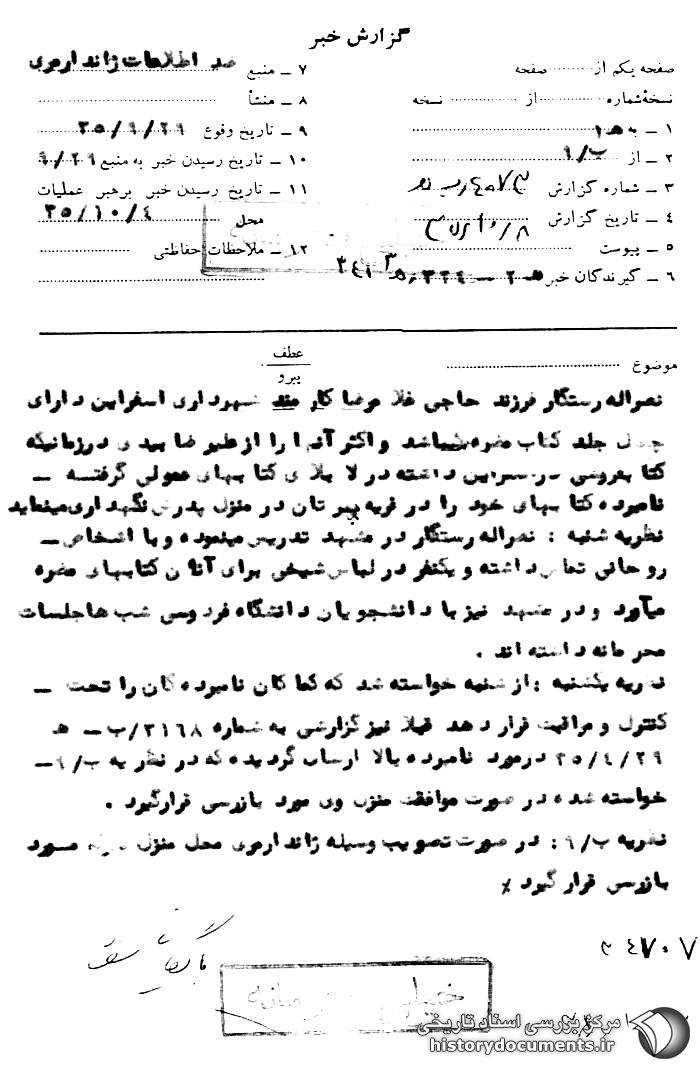 گزارش خبر
صفحه یکم از ........ صفحه
نسخه شماره ........ از ........ نسخه
۱ ـ به
۲ ـ از ۹/ب
۳ ـ شماره گزارش
۴ ـ تاریخ گزارش
۵ ـ پیوست
۶ ـ گیرندگان خبر
۷ ـ منبع ضد اطلاعات ژاندارمری
۸ ـ منشأ
۹ ـ تاریخ وقوع ۳۵/۹/۲۹
۱۰ ـ تاریخ رسیدن خبر به منبع ۹/۲۹
۱۱ ـ تاریخ رسیدن خبر برهبر عملیات
محل ۳۵/۱۰/٤
۱۲ ـ ملاحظات حفاظتی
موضوع
عطف
پیرو
نصراله رستگار فرزند حاجی غلامرضا کارمند شهرداری اسفراین دارای
چهل جلد کتاب مضره میباشد و اکثر آنها را از علیرضا بیدی درزمانیکه
کتابفروشی در اسفراین داشته در لابلای کتابهای معمولی گرفتــه ـ
نامبرده کتابهای خود را در قریه پیرتان در منزل پدرش نگهداری مینماید
نظریه شنبه : نصراله رستگار در مشهد تدریس مینموده و با اشخاص ـ
روحانی تماس داشته و یکنفر در لباس شیخی برای آنان کتابهای مضره
میآورد و در مشهد نیز با دانشجویان دانشگاه فردوسی شب ها جلسات
محرمانه داشته اند .
نظریه یکشنبه : از شنبه خواسته شد که کماکان نامبرده گان را تحت ـ
کنترل و مراقبت قرار دهد قبلا نیز گزارشی به شماره ۳۱۶۸/ب ـ هـ
۳۵/٤/۲۹ درمورد نامبرده بالا ارسال گردیده که در نظریه ب/۹ ـ
خواسته شده در صورت موافقت منزل وی مورد بازرسی قرارگیرد .
نظریه ب/۹ : در صورت تصویب وسیله ژاندارمری محل منزل مــورد
بازرسی قرار گیرد ٪
۲٤۷۰۷
خیلی محرمانه
مرکز بررسی اسناد تاریخی
historydocuments.ir